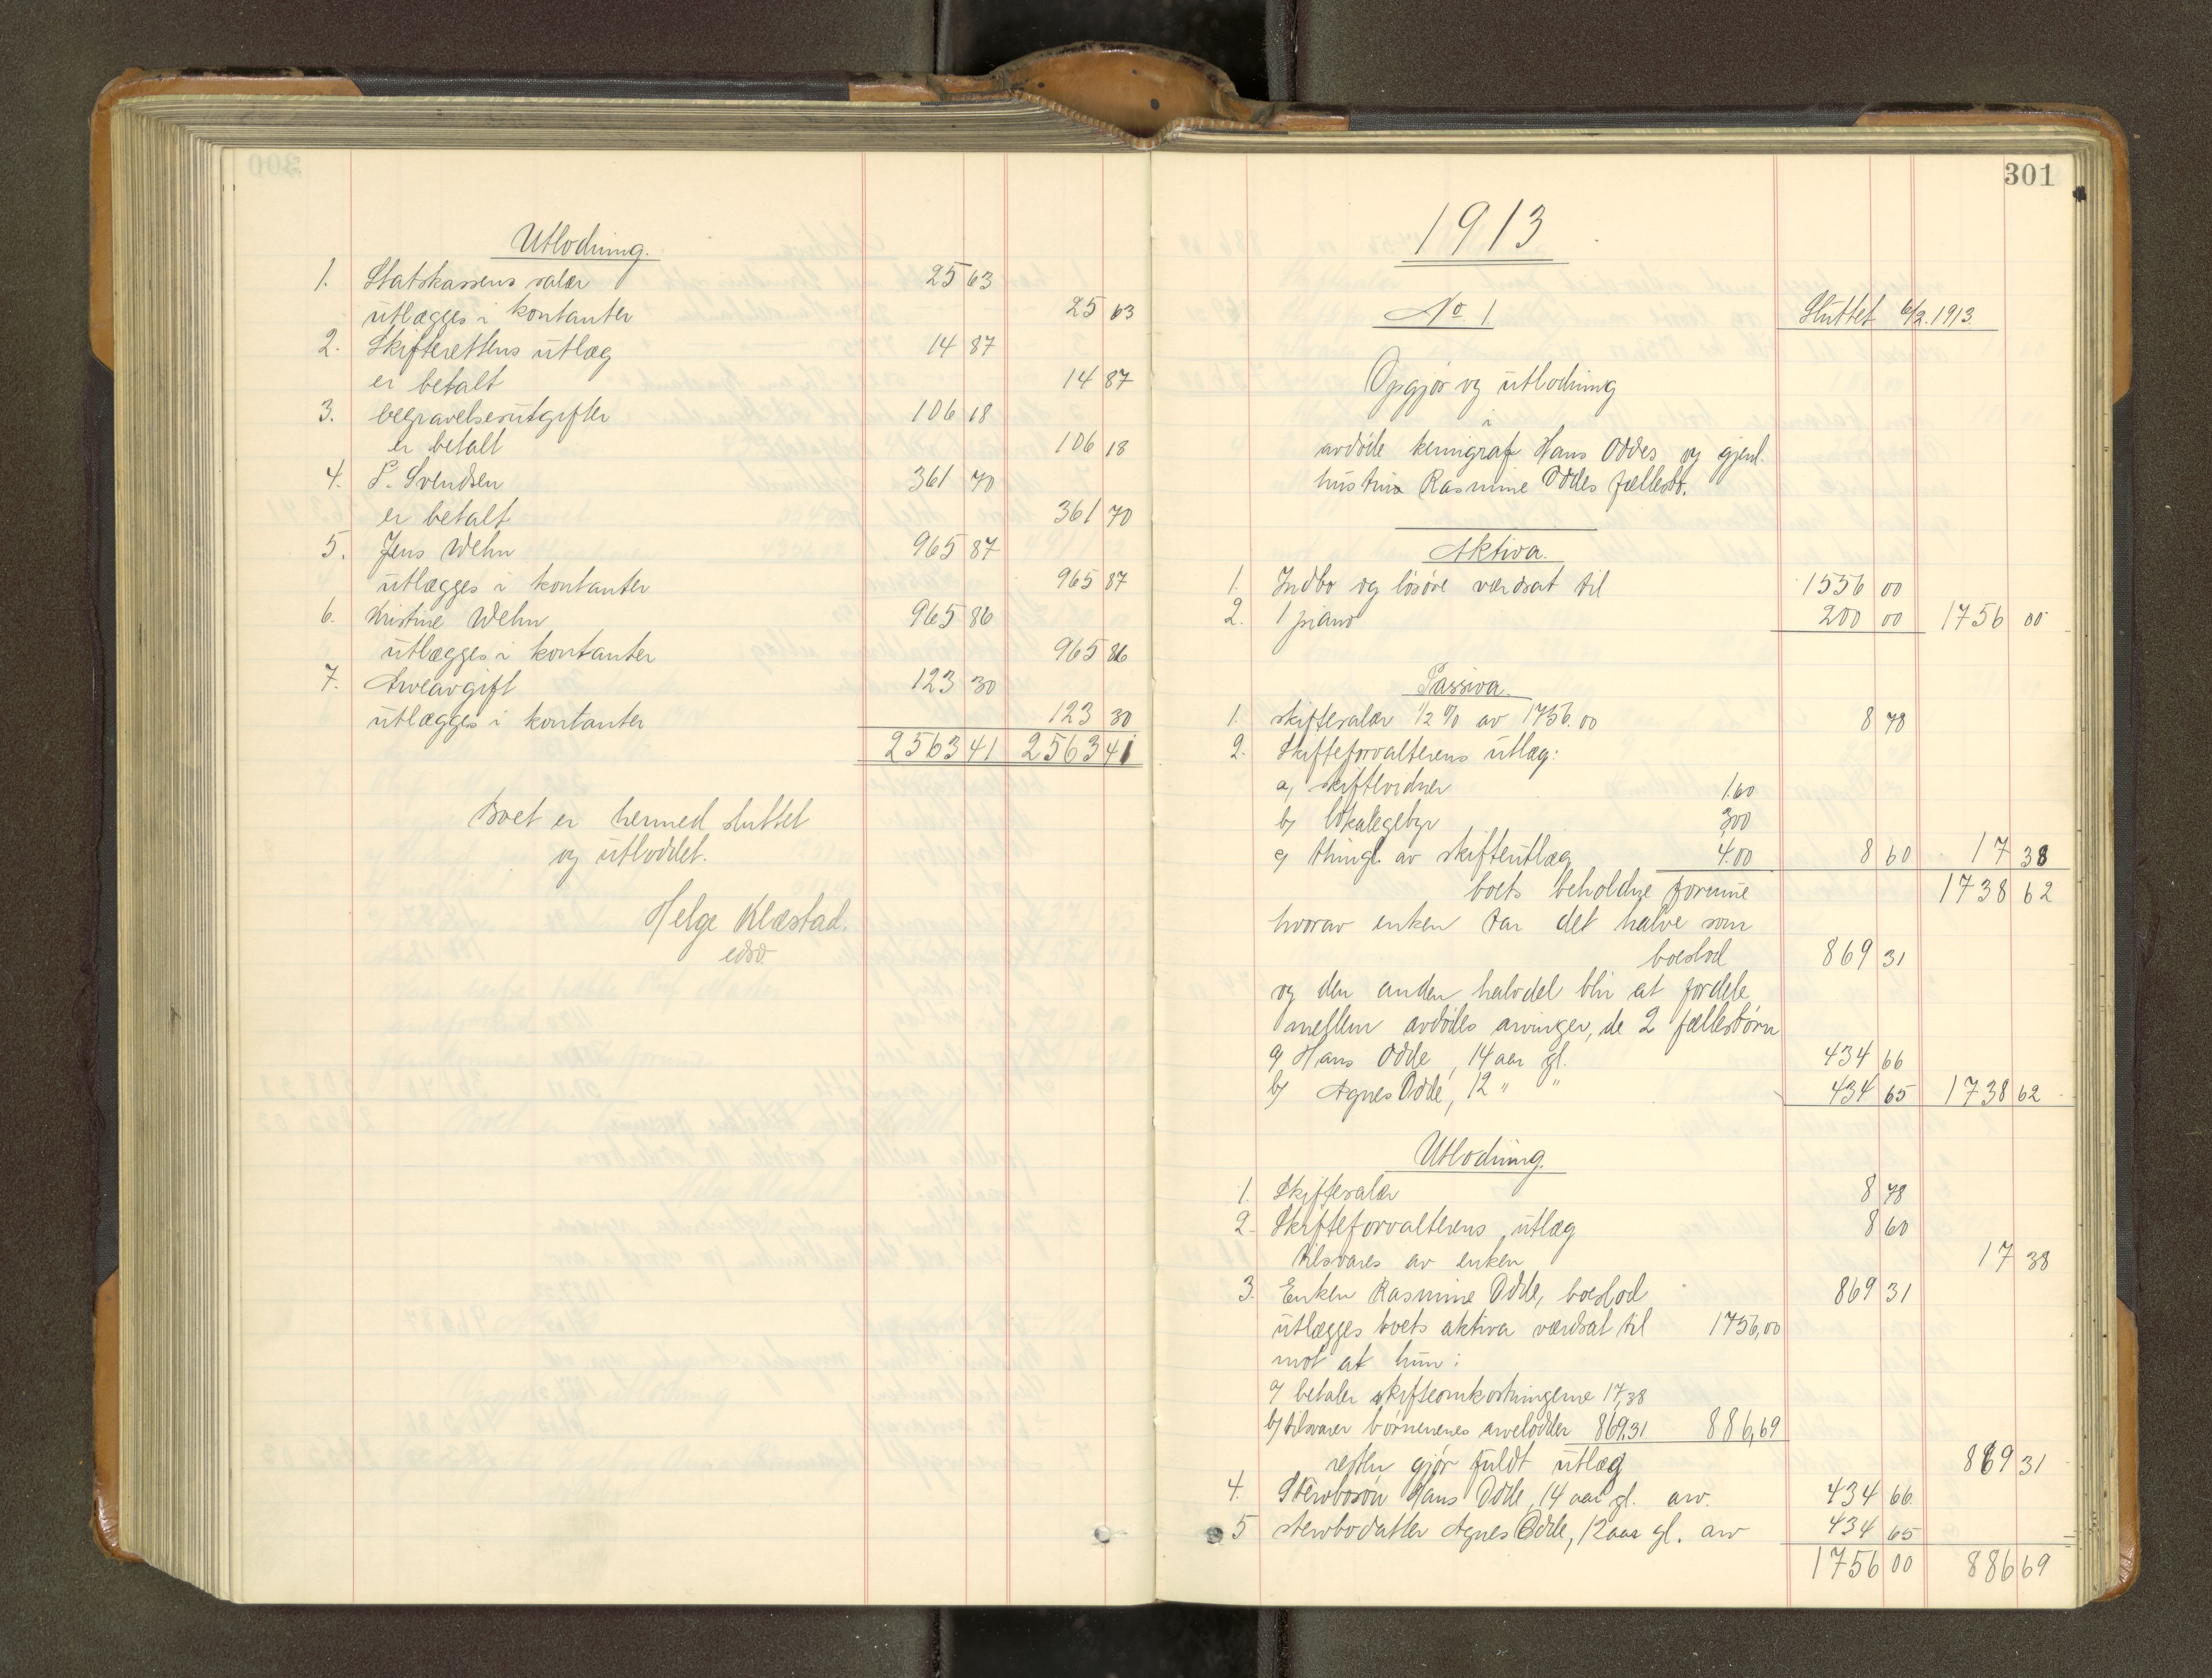 Utlodning.
1. Statskassens salær 25 63
utlægges i kontanter 25 63
2. Skifterettens utlæg 14 87
er betalt 14 87
3. begravelsesutgifter 106 18
er betalt 106 18
4. P. Svendsen 361 70
er betalt 361 70
5. Jens Wehn 965 87
utlægges i kontanter 965 87
6. Kristine Wehn 965 86
utlægges i kontanter 965 86
7. Arveavgift 123 30
utlægges i kontanter 123 30
2563 41 2563 41
Boet er hermed sluttet
og utloddet.
Helge Klæstad.
edsv.
301
1913
No 1. Sluttet 6/2.1913.
Opgjør og utlodning
i
avdøde kemigraf Hans Oddes og gjenl.
hustru Rasmine Oddes fællesbo.
Aktiva.
1. Indbo og løsøre værdsat til 1556 00
2. 1 piano 200 00 1756 00
Passiva.
1. skiftesalær 1/2 % av 1756.00 8 78
2. Skifteforvalterens utlæg:
a, skiftevidner 1.60
b, lokalegebyr 300
c, thingl. av skifteutlæg 4.00 8 60 17 38
boets beholdne formue 1738 62
hvorav enken tar det halve som
boeslod 869 31
og den anden halvdel blir at fordele
mellem avdødes arvinger, de 2 fællesbørn
a, Hans Odde, 14 aar gl. 434 66
b, Agnes Odde, 12 " " 434 65 1738 62
Utlodning.
1. Skiftesalær 8 78
2. Skifteforvalterens utlæg 8 60
tilsvares av enken 17 38
3. Enken Rasmine Odde, boeslod 869 31
utlægges boets aktiva værdsat til 1756,00
mot at hun:
a, betaler skifteomkostningerne 17,38
b, tilsvarer børnenes arvelodder 869,31 886,69
resten gjør fuldt utlæg 869 31
4. Stervbosøn Hans Odde, 14 aar gl. arv. 434 66
5 stervbodatter Agnes Odde, 12 aar gl. arv 434 65
1756 00 886 69